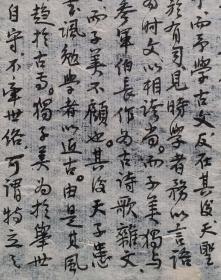 而予學古文反在其後天聖
於有司見時學者務以言語
為時文以相誇尚而子美獨與
參軍伯長作為古詩歌雜文
而子美不顧也其後天子患
書諷勉學者以近古由是其風
趨於古焉獨子美為於舉世
自守不牽世俗可謂特立之